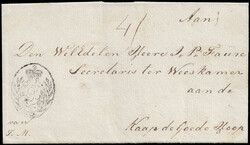 4/
Aan
Den WelEdelen Heere J. P. Faure
Secretaris ter Weeskamer
aan de
Kaap de Goede Hoop